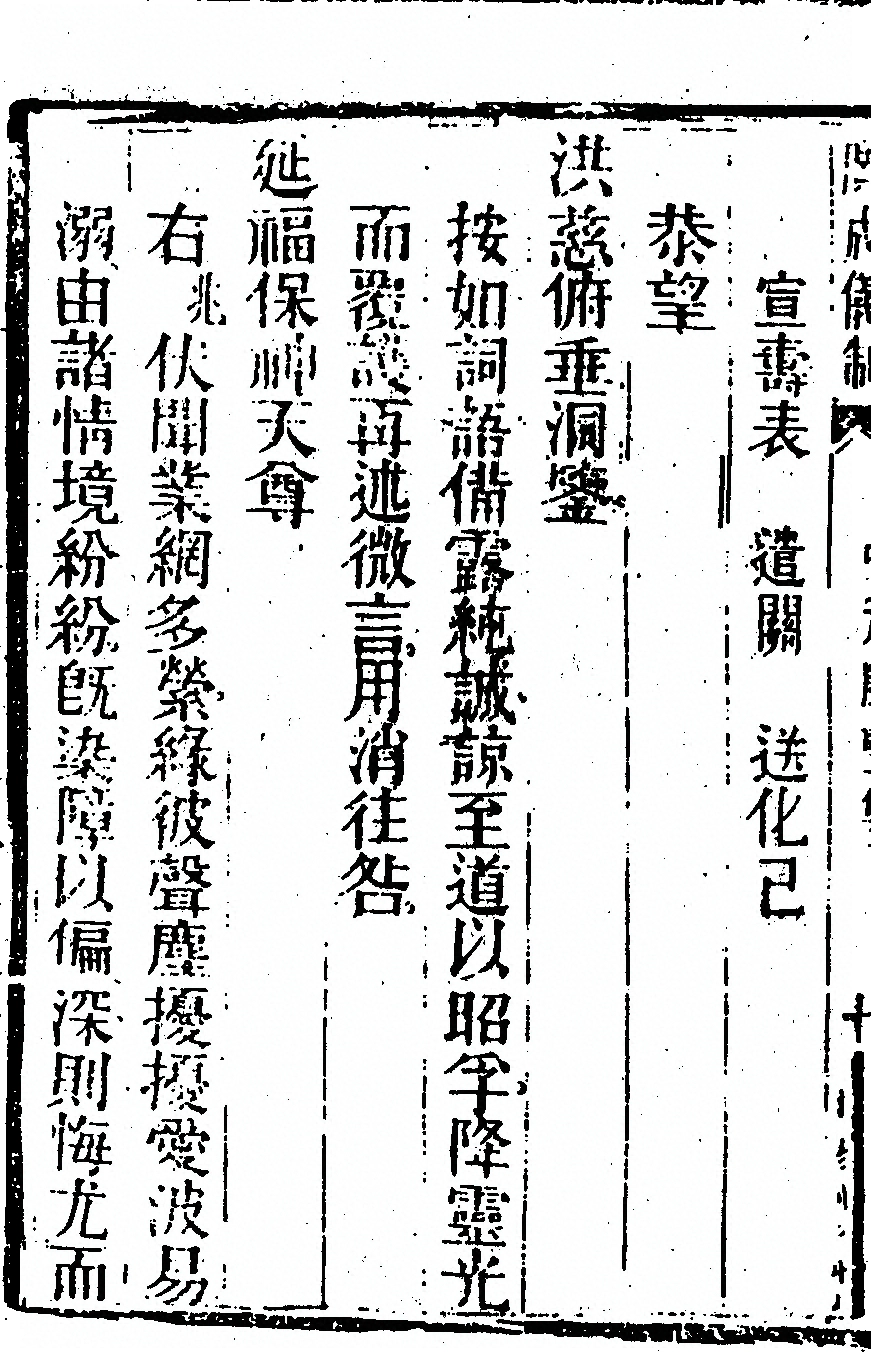 宣壽表　遣關　送化已
恭望
洪慈俯垂洞鑒
按如詞語備露純誠諒至道以昭孚降靈光
而覆護再述微言用消往咎
延福保神天尊
右兆伏聞業網多縈緣彼聲塵擾擾愛波易
溺由諸情境紛紛旣染障以偏深則悔尤而